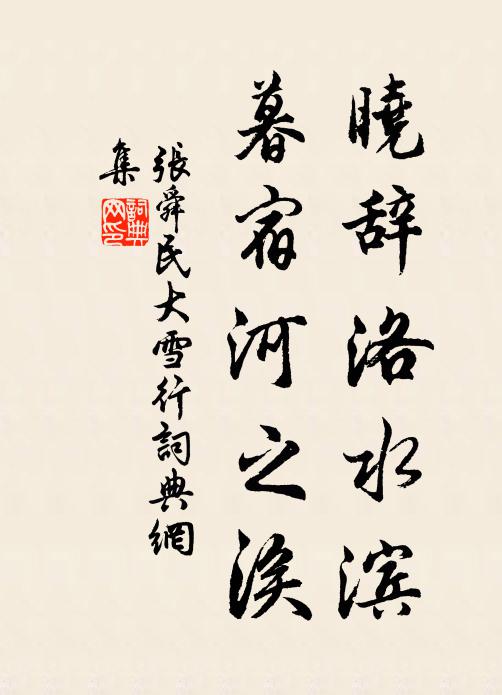 曉辞洛水滨
暮宿河之涘
張舜民大雪行詞典網
集
詞典网印